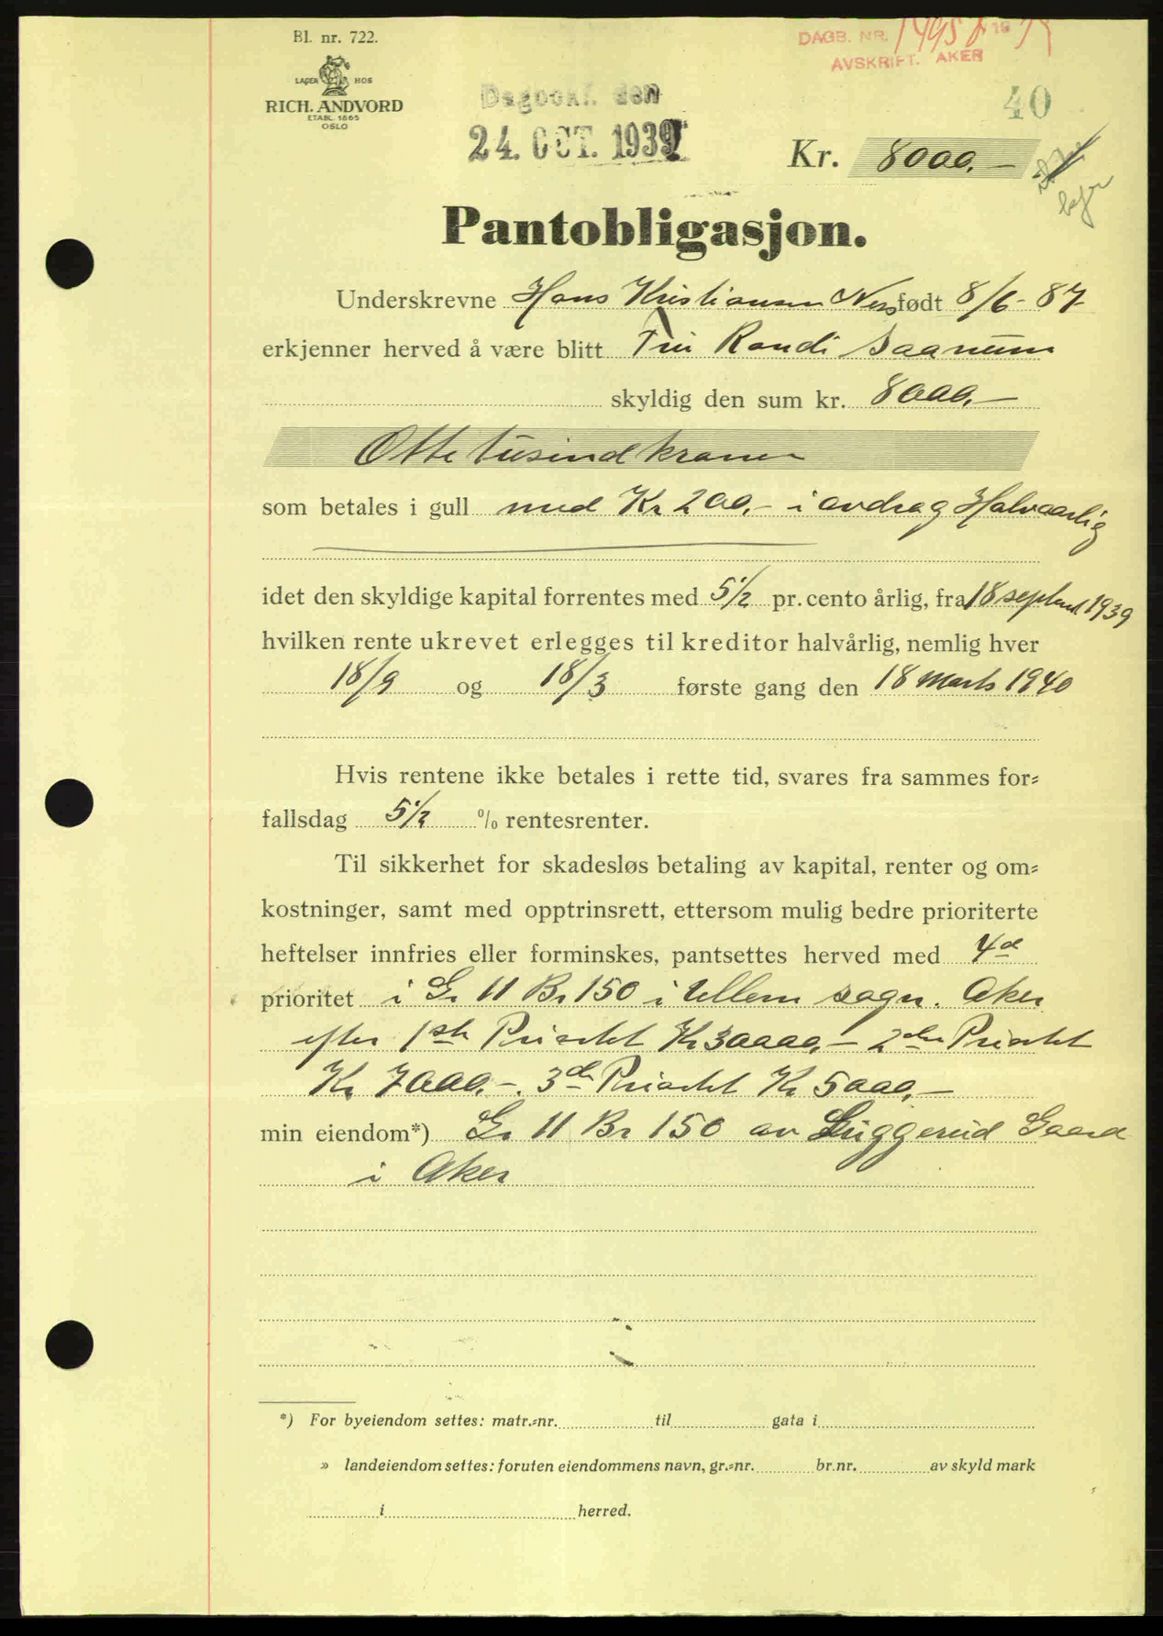 Bl. nr. 722.
LAGER HOS
RICH. ANDVORD
ETABL. 1865
OSLO
DAGB. NR. 19
AVSKRIFT. AKER
Dagbokf. den
24. OCT. 1939
40
Kr. 8000.-
Pantobligasjon.
Underskrevne Hans Kristiansen Ness født 8/6-87
erkjenner herved å være blitt Randi Saanum
skyldig den sum kr. 8000.-
Otte tusind kroner
som betales i gull med Kr 200.- i avdrag Halvaarlig
idet den skyldige kapital forrentes med 5½ pr. cento årlig, fra 18 septbr. 1939
hvilken rente ukrevet erlegges til kreditor halvårlig, nemlig hver
18/9 og 18/3 første gang den 18 marts 1940
Hvis rentene ikke betales i rette tid, svares fra sammes for-
fallsdag 5½ % rentesrenter.
Til sikkerhet for skadesløs betaling av kapital, renter og om-
kostninger, samt med opptrinsrett, ettersom mulig bedre prioriterte
heftelser innfries eller forminskes, pantsettes herved med 4de
prioritet i Gr 11 Br 150 i Ullern sogn. Aker
efter 1ste Prioritet Kr 30000.- 2den Prioritet
Kr 7000.-. 3die Prioritet Kr 5000.-
min eiendom*) Gr 11 Br 150 av Guggerud Gaard
i Aker
*) For byeiendom settes: matr.-nr. til gata i
» landeiendom settes: foruten eiendommens navn, gr.-nr. br.nr. av skyld mark
i herred.